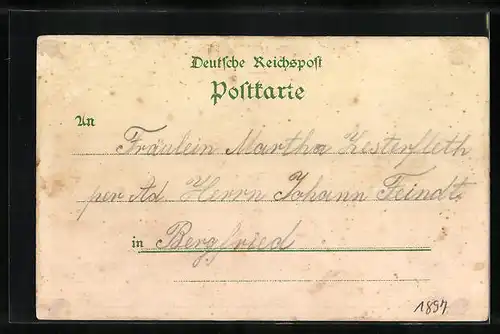 Deutsche Reichspost
Postkarte
An Fräulein Martha Zesterfleth
per Ad Herrn Johann Feindt
in Bergfried
1897